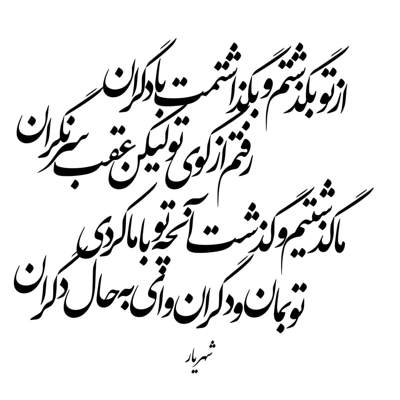 از تو بگذشتم و بگذاشتمت با دگران
رفتم از کوی تو لیکن عقب سر نگران
ما گذشتیم و گذشت آنچه تو با ما کردی
تو بمان و دگران وای به حال دگران
شهریار